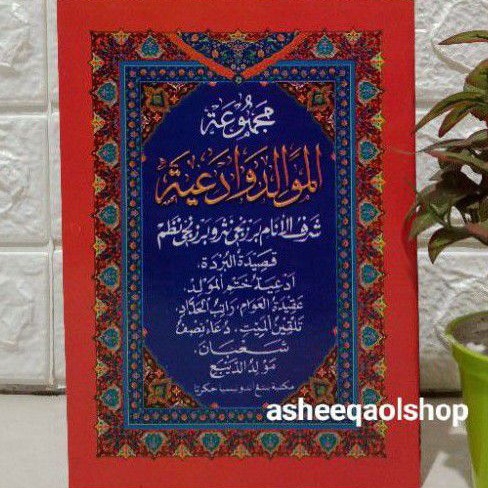 مجموعة
الموالد وأدعية
شرف الأنام برزنجي نثر وبرزنجي نظم
قصيدة البردة،
أدعية ختم المولد،
عقيدة العوام، راتب الحداد
تلقين الميت، دعاء نصف
شعبان،
مولد الديبعي
مكتبة
asheeqaolshop